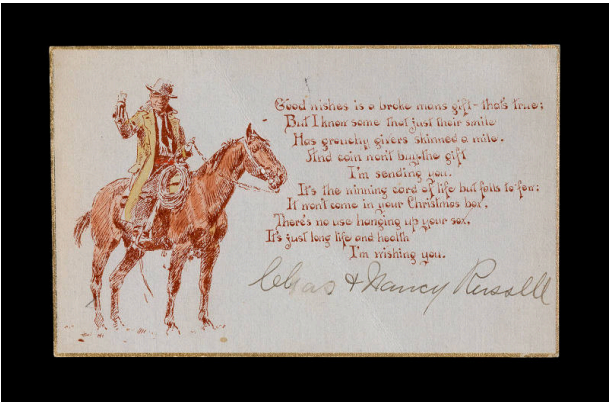 Good wishes is a broke mans gift - thats true;
But I know some that just their smile
Has grouchy givers skinned a mile.
And coin won't buy the gift
I'm sending you.
It's the winning card of life but falls to few:
It won't come in your Christmas box,
There's no use hanging up your sox,
It's just long life and health
I'm wishing you.
Chas & Nancy Russell